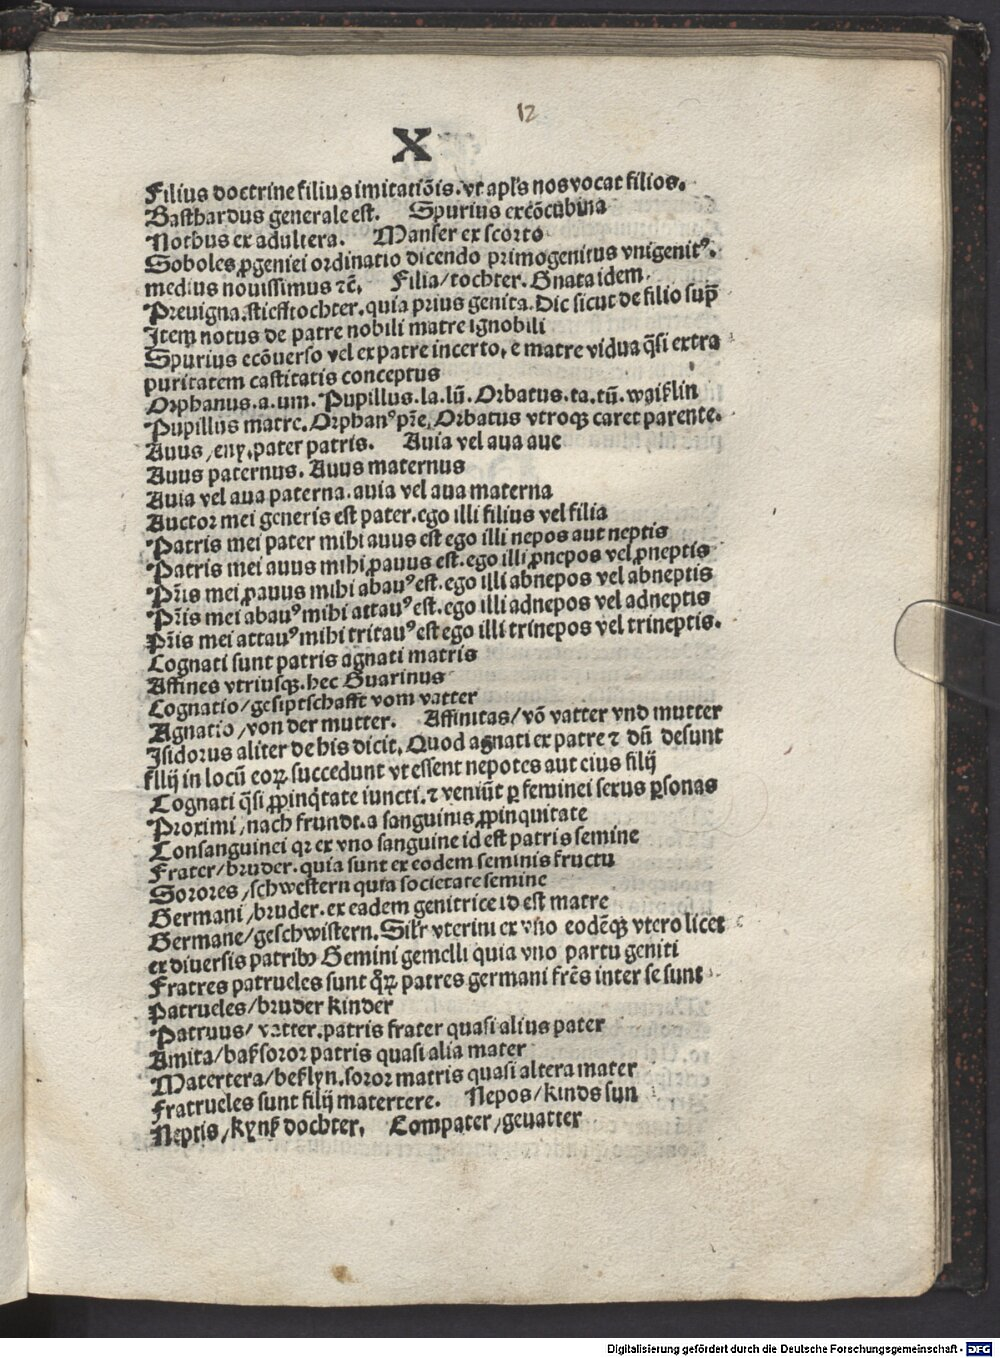 12
X
Filius doctrine filius imitatiōis. vt apl's nos vocat filios.
Basthardus generale est. Spurius ex cōcubina
Nothus ex adultera. Manser ex scorto
Soboles ꝓgeniei ordinatio dicendo primogenitus vnigenitꝰ.
medius nouissimus ⁊c̄. Filia/tochter. Gnata idem.
Preuigna.stiefftochter.quia prius genita.Dic sicut de filio sup̄
Item notus de patre nobili matre ignobili
Spurius ecōuerso vel ex patre incerto, e matre vidua q̄si extra
puritatem castitatis conceptus
Orphanus.a.um. Pupillus.la.lū. Orbatus.ta.tū. waißlin
Pupillus matre. Orphanꝰ pr̄e. Orbatus vtroqꝫ caret parente.
Auus/eny.pater patris. Auia vel aua aue
Auus paternus. Auus maternus
Auia vel aua paterna.auia vel aua materna
Auctor mei generis est pater.ego illi filius vel filia
Patris mei pater mihi auus est ego illi nepos aut neptis
Patris mei auus mihi ꝓauus est.ego illi ꝓnepos vel ꝓneptis
Pr̄is mei ꝓauus mihi abauꝰ est.ego illi abnepos vel abneptis
Pr̄is mei abauꝰ mihi attauꝰ est.ego illi adnepos vel adneptis
Pr̄is mei attauꝰ mihi tritauꝰ est ego illi trinepos vel trineptis.
Cognati sunt patris agnati matris
Affines vtriusqꝫ.hec Guarinus
Cognatio/gesiptschafft vom vatter
Agnatio/von der mutter. Affinitas/vō vatter vnd mutter
Isidorus aliter de his dicit. Quod agnati ex patre ⁊ dū desunt
fllij in locū eoꝝ succedunt vt essent nepotes aut eius filij
Cognati q̄si ꝓpinq̄tate iuncti.⁊ veniūt ꝑ feminei sexus ꝑsonas
Proximi/nach frundt.a sanguinis ꝓpinquitate
Consanguinei qꝛ ex vno sanguine id est patris semine
Frater/bruder.quia sunt ex eodem seminis fructu
Sorores/schwestern quia societate semine
Germani/bruder.ex eadem genitrice id est matre
Germane/geschwistern. Silr̄ vterini ex vno eodēqꝫ vtero licet
ex diuersis patribꝰ Gemini gemelli quia vno partu geniti
Fratres patrueles sunt qͦꝝ patres germani fr̄es inter se sunt
Patrueles/bruder kinder
Patruus/vatter.patris frater quasi alius pater
Amita/baß soror patris quasi alia mater
Matertera/beßlyn.soror matris quasi altera mater
Fratrueles sunt filij matertere. Nepos/kinds sun
Neptis/kynß dochter. Compater/geuatter
Digitalisierung gefördert durch die Deutsche Forschungsgemeinschaft - DFG